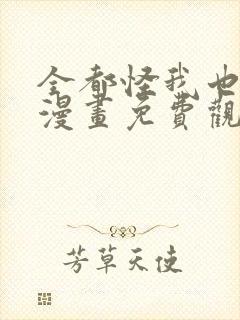 全都怪我也
漫畫免費觀
芳草天使